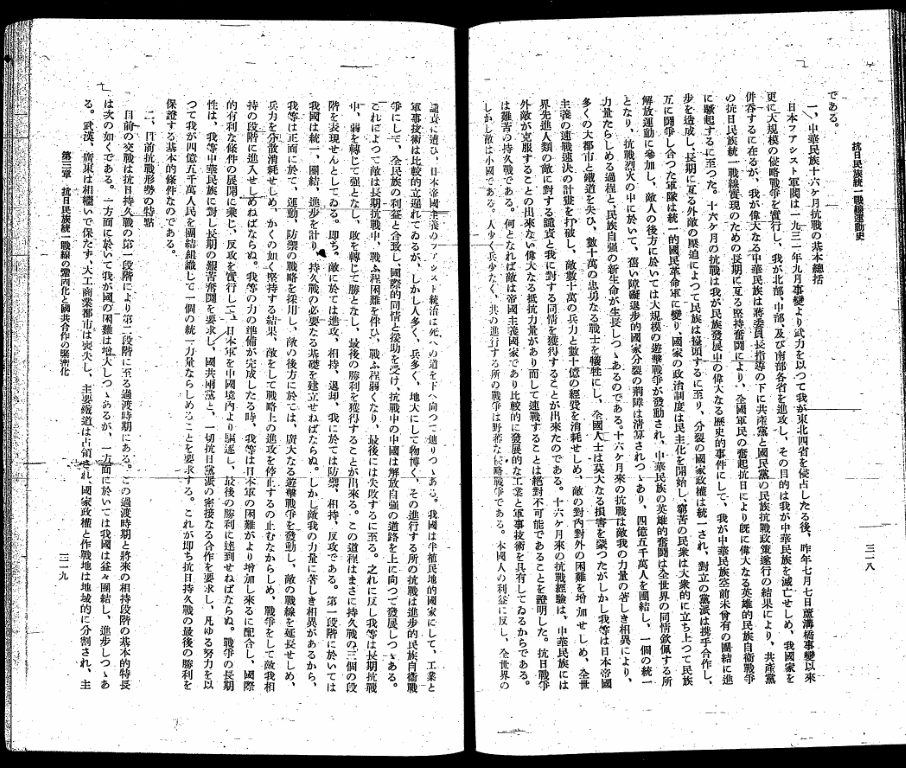 抗日民族統一戰線運動史
三一八
である。
一、中華民族十六ケ月抗戰の基本總括
日本フアアシスト軍閥は一九三一年九月事變より武力を以つて我が東北四省を侵占したる後、昨年七月七日蘆溝橋事變以來
更に大規模の侵略戰爭を實行し、我が北部、中部、及び南部各省を進攻し、その目的は我が中華民族を滅亡せしめ、我國家を
併呑するに在るが、我が偉大なる中華民族は蔣委員長指導の下に共產黨と國民黨の民族抗戰政策遂行の結果により、共產黨
の抗日民族統一戰線實現のための長期に亙る堅持奮鬪により、全國軍民の奮起抗日により既に偉大なる英雄的民族自衞戰爭
に驅起するに至つた。十六ケ月の抗戰は我が民族發展中の偉大なる歷史的事件にして、我が中華民族空前未曾有の團結に進
步を造成し、長期に亙る外敵の壓迫によつて民族は擡頭するに至り、分裂の國家政權は統一され、對立の黨派は携手合作し、
互に鬪爭し合つた軍隊は統一的國民革命軍に變り、國家の政治制度は民主化を開始し、窮苦の民衆は大衆的に立ち上つて民族
解放運動に參加し、敵人の後方に於いては大規模の遊擊戰爭が發動され、中華民族の英雄的奮鬪は全世界の同情欽佩する所
となり、抗戰烈火の中に於いて、舊い障礙進步的國家分裂の荊棘は清算されつゝあり、四億五千萬人を團結し、一個の統一
力量たらしめる過程と、民族自强の新生命が生長しつゝあるのである。十六ケ月來の抗戰は敵我の力量の著しき相異により、
多くの大都市と鐵道を失ひ、數十萬の忠勇なる戰士を犧牲にし、全國人士は莫大なる損害を蒙つたがしかし我等は日本帝國
主義の速戰速決の計畫を打破し、敵數十萬の兵力と數十億の經費を消耗せしめ、敵の對內對外の困難を增加せしめ、全世
界先進人類の敵に對する譴責と我に對する同情を獲得することが出來たのである。十六ケ月來の抗戰經驗は、中華民族には
外敵が克服することの出來ない偉大なる抵抗力量があり而して速戰することは絕對不可能であることを證明した。抗日戰爭
は艱苦の持久戰である。何となれば敵は帝國主義國家であり比較的に發展的な工業と軍事技術を具有してゐるからである。
しかし敵は小國である。人少く兵少なく、其の進行する所の戰爭は野蠻なる侵略戰爭である。本國人の利益に反し、全世界の
譴責に遭ひ、日本帝國主義のフアシスト統治は死への道を下へ向つて進りつゝある。我國は半植民地的國家にして、工業と
軍事技術は比較的立遲れてゐるが、しかし人多く、兵多く、地大にして物博く、その進行する所の抗戰は進步的民族自衞戰
爭にして、全民族の利益と合致し、國際的同情と援助を受け、抗戰中の中國は解放自强の道路を上に向つて發展しつゝある。
これによつて敵は長期抗戰中、戰ふ程困難を伴ひ、戰ふ程弱くなり、最後には失敗するに至る。之れに反し我等は長期抗戰
中、弱を轉じて强となし、敗を轉じて勝となし、最後の勝利を獲得することが出來る。この道程はまさに持久戰の三個の段
階を表現せんとしてゐる。卽ち、敵に於ては進攻、相持、退却、我に於ては防禦、相持、反攻である。第一段階に於いては
我國は統一、團結、進步を計り、持久戰の必要なる基礎を建立せねばならぬ。しかし敵我の力量に著しき相異があるから、
我等は正面に於て、運動、防禦の戰略を採用し、敵の後方に於ては、廣大なる遊擊戰爭を發動し、敵の戰線を延長せしめ、
兵力を分散消耗せしめ、かくの如く堅持する結果、敵をして戰略上の進攻を停止するの止むなからしめ、戰爭をして敵我相
持の段階に進入せしめねばならぬ。我等の力の準備が完成したる時、我等は日本軍の困難がより增加し來るに配合し、國際
的有利な條件の展開に乘じ、反攻を實行して、日本軍を中國境內より驅逐し、最後の勝利に達到せねばならぬ。戰爭の長期
性は、我等中華民族に對し長期の艱苦奮鬪を要求し、國共兩黨と、一切抗日黨派の密接なる合作を要求し、凡ゆる努力を以
つて我が四億五千萬人民を團結組織して一個の統一力量ならしめることを要求する。これが卽ち抗日持久戰の最後の勝利を
保證する基本的條件なのである。
二、目前抗戰形勢の特點
目前の交戰は抗日持久戰の第一段階により第二段階に至る過渡時期にある。この過渡時期と將來の相持段階の基本的特長
は次の如くである。一方面に於いて我が國の困難は增大しつゝあるが、一方面に於いては我國は益々團結し、進步しつゝあ
る。武漢、廣東は相繼いで保たず、大工商業都市は喪失し、主要鐵道は占領され、國家政權と作戰地は地域的に分割され、主
第三章 抗日民族統一戰線の鞏固化と國共合作の緊密化
三一九